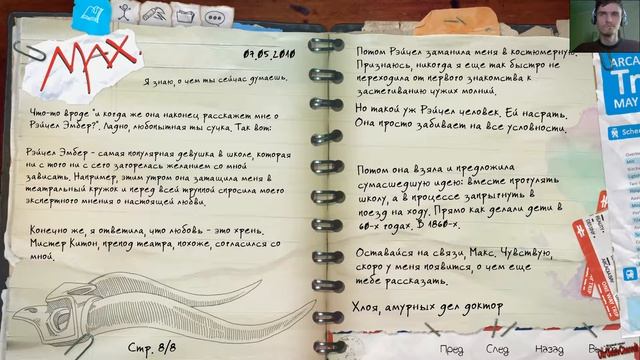 MAX.
07.05.2010
Я знаю, о чем ты сейчас думаешь.
Что-то вроде "и когда же она наконец расскажет мне о
Рэйчел Эмбер?". Ладно, любопытная ты сучка. Так вот:
Рэйчел Эмбер - самая популярная девушка в школе, которая
ни с того ни с сего загорелась желанием со мной
зависать. Например, этим утром она затащила меня в
театральный кружок и перед всей труппой спросила моего
экспертного мнения о настоящей любви.
Конечно же, я ответила, что любовь - это хрень.
Мистер Китон, препод театра, похоже, согласился со
мной.
Стр. 8/8
Потом Рэйчел заманила меня в костюмерную.
Признаюсь, никогда я еще так быстро не
переходила от первого знакомства к
застегиванию чужих молний.
Но такой уж Рэйчел человек. Ей насрать.
Она просто забивает на все условности.
Потом она взяла и предложила
сумасшедшую идею: вместе прогулять
школу, а в процессе запрыгнуть в
поезд на ходу. Прямо как делали дети в
60-х годах. В 1860-х.
Оставайся на связи, Макс. Чувствую,
скоро у меня появится, о чем еще
тебе рассказать.
Хлоя, амурных дел доктор
Пред
След
Назад
ARCA
Tr
MAY
Sche